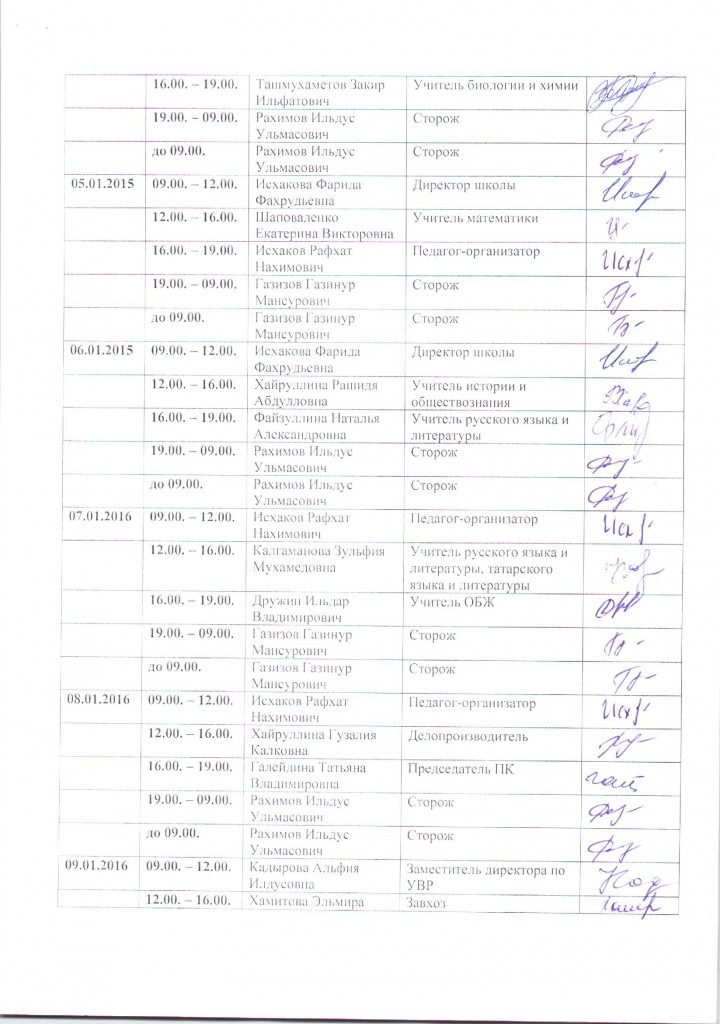 16.00. – 19.00. Ташмухаметов Закир Учитель биологии и химии
Ильфатович
19.00. – 09.00. Рахимов Ильдус Сторож
Ульмасович
до 09.00. Рахимов Ильдус Сторож
Ульмасович
05.01.2015 09.00. – 12.00. Исхакова Фарида Директор школы
Фахрудьевна
12.00. – 16.00. Шаповаленко Учитель математики
Екатерина Викторовна
16.00. – 19.00. Исхаков Рафхат Педагог-организатор
Нахимович
19.00. – 09.00. Газизов Газинур Сторож
Мансурович
до 09.00. Газизов Газинур Сторож
Мансурович
06.01.2015 09.00. – 12.00. Исхакова Фарида Директор школы
Фахрудьевна
12.00. – 16.00. Хайруллина Рашидя Учитель истории и
Абдулловна обществознания
16.00. – 19.00. Файзуллина Наталья Учитель русского языка и
Александровна литературы
19.00. – 09.00. Рахимов Ильдус Сторож
Ульмасович
до 09.00. Рахимов Ильдус Сторож
Ульмасович
07.01.2016 09.00. – 12.00. Исхаков Рафхат Педагог-организатор
Нахимович
12.00. – 16.00. Калгаманова Зульфия Учитель русского языка и
Мухамедовна литературы, татарского
языка и литературы
16.00. – 19.00. Дружин Ильдар Учитель ОБЖ
Владимирович
19.00. – 09.00. Газизов Газинур Сторож
Мансурович
до 09.00. Газизов Газинур Сторож
Мансурович
08.01.2016 09.00. – 12.00. Исхаков Рафхат Педагог-организатор
Нахимович
12.00. – 16.00. Хайруллина Гузалия Делопроизводитель
Калковна
16.00. – 19.00. Галейдина Татьяна Председатель ПК
Владимировна
19.00. – 09.00. Рахимов Ильдус Сторож
Ульмасович
до 09.00. Рахимов Ильдус Сторож
Ульмасович
09.01.2016 09.00. – 12.00. Кадырова Альфия Заместитель директора по
Илдусовна УВР
12.00. – 16.00. Хамитова Эльмира Завхоз